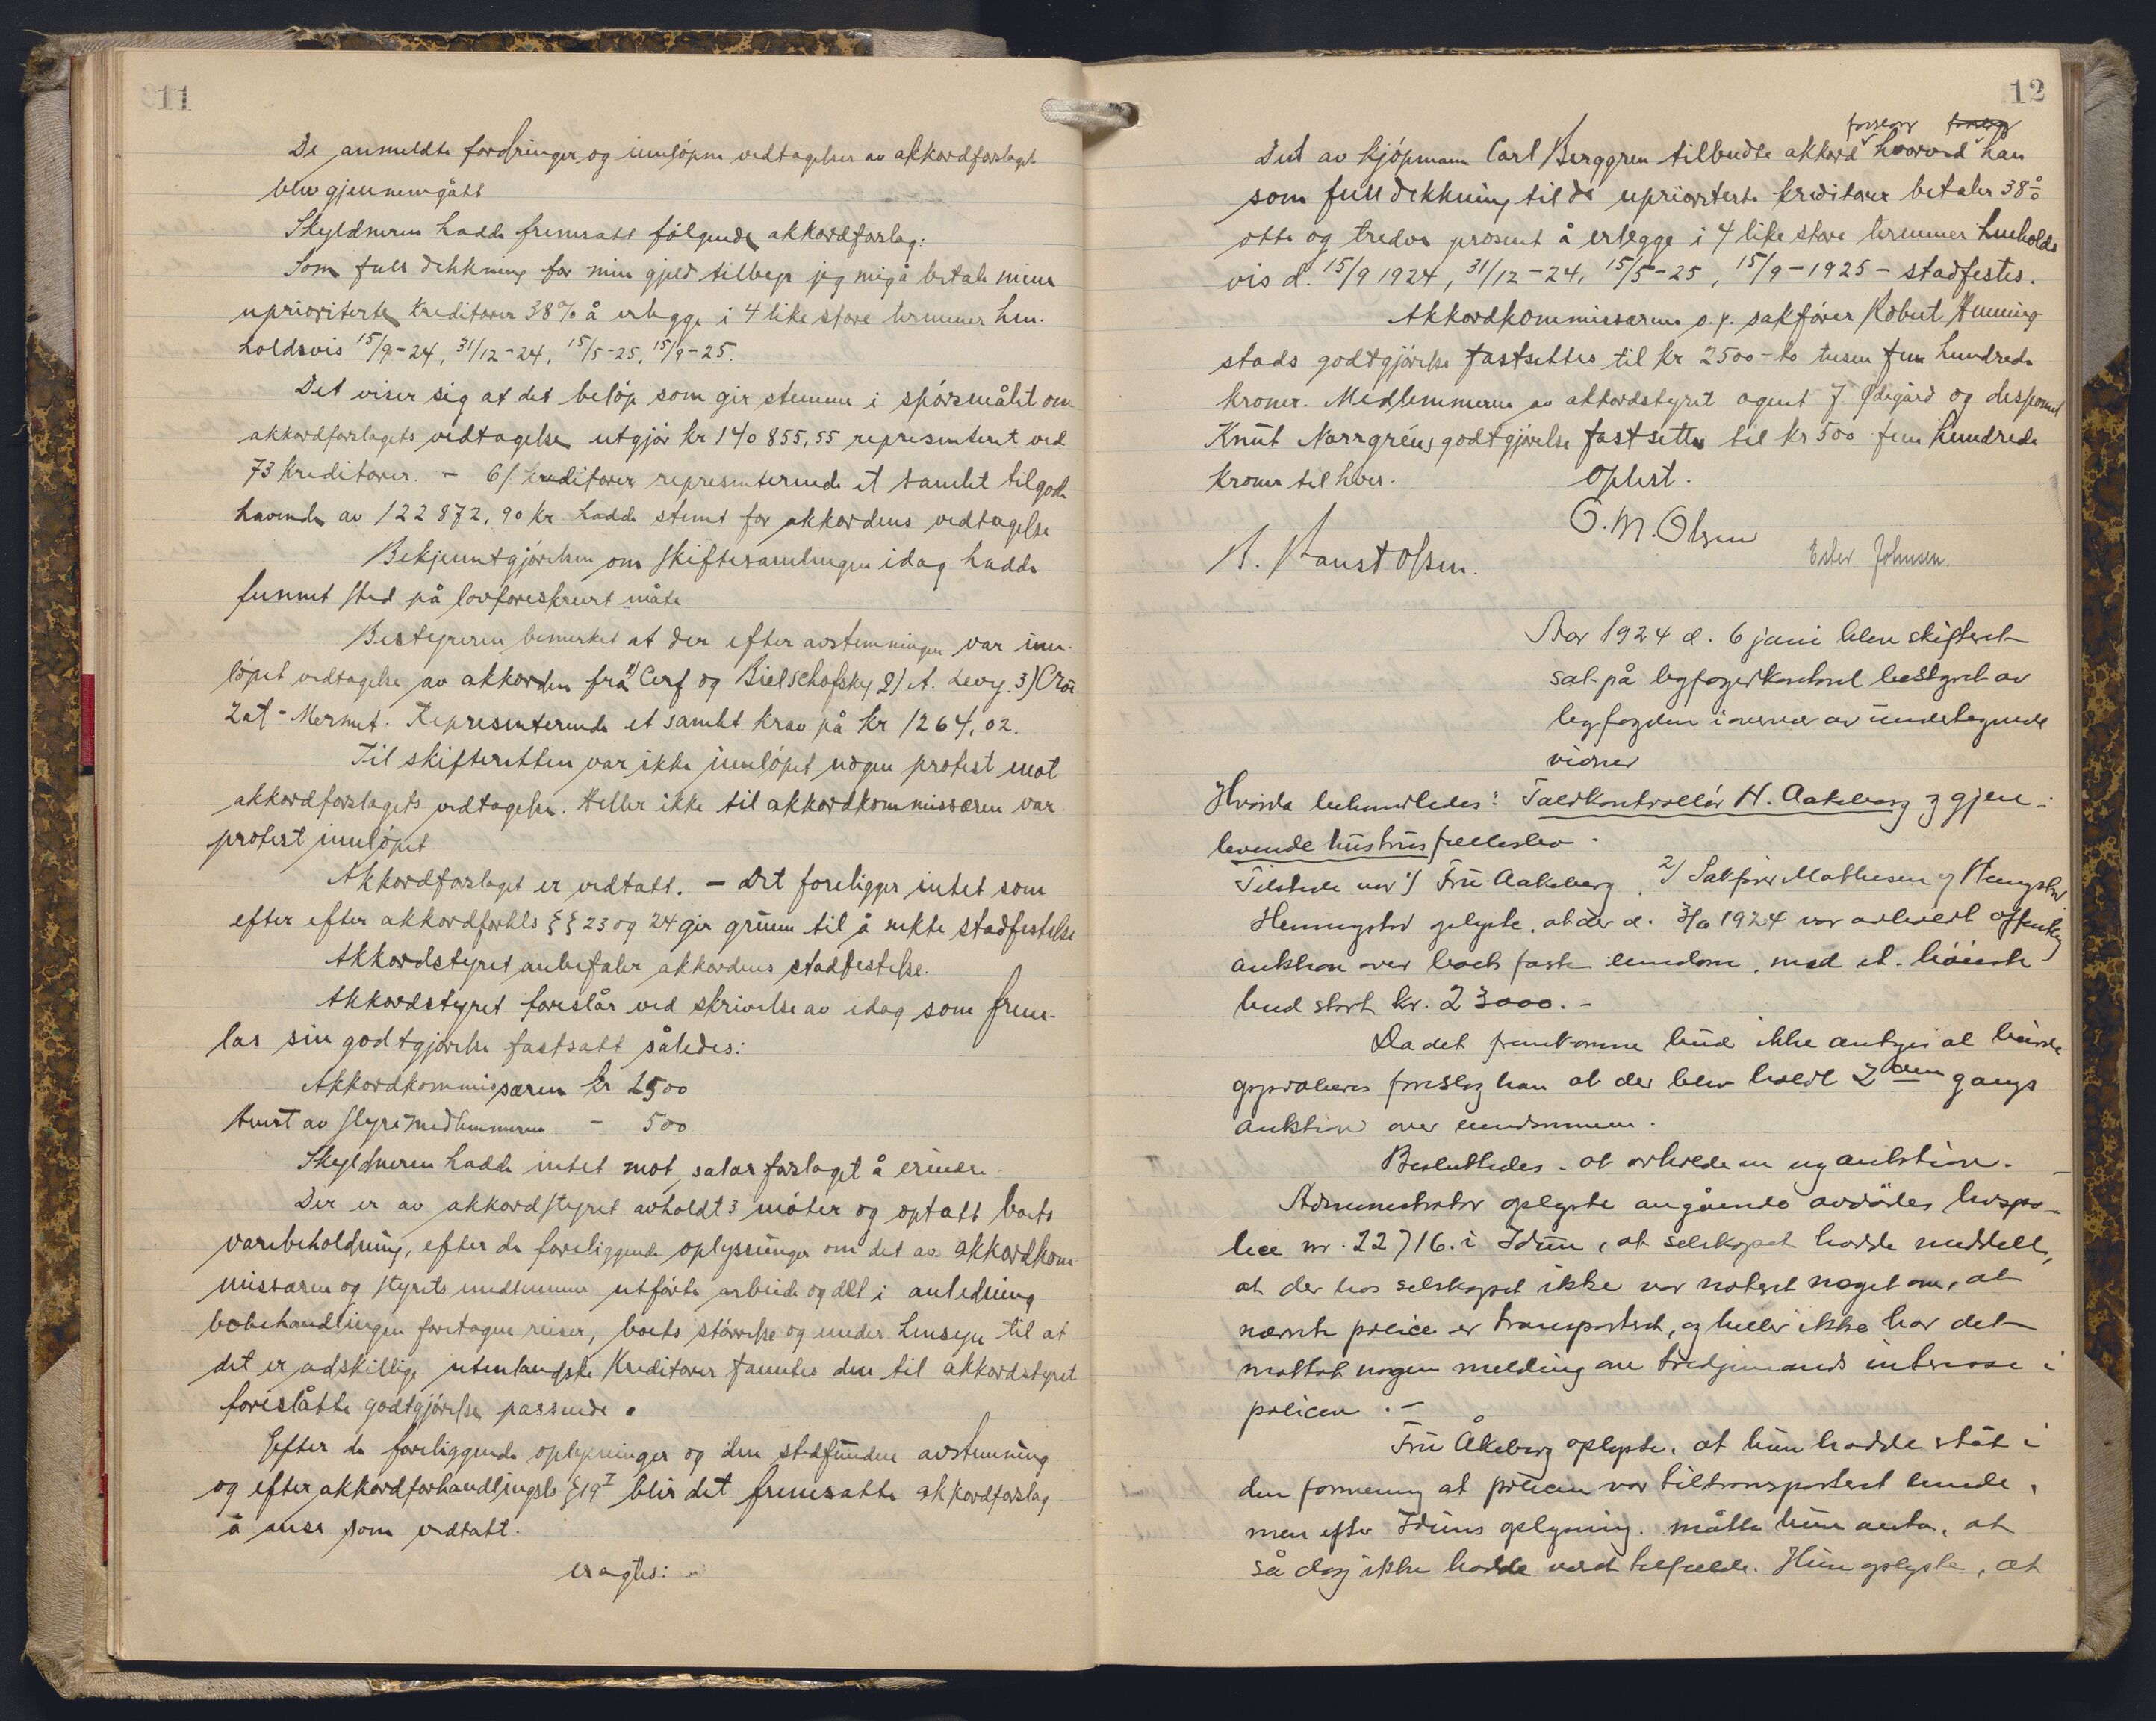 11
De anmeldte fordringer og innløpne vedtagelser av akkordforslaget
blev gjennemgått
Skyldneren hadde fremsatt følgende akkordforslag:
Som full dekkning for min gjeld tilbyr jeg mig å betale mine
uprioriterte kreditorer 38% å erlegge i 4 like store terminer hen-
holdsvis 15/9-24, 31/12-24, 15/5-25, 15/9-25.
Det viser sig at det beløp som gir stemme i spørsmålet om
akkordforslagets vedtagelse utgjør kr 140 855,55 representeret ved
73 kreditorer. - 61 kreditorer representerende et samlet tilgode
havende av 122 872,90 kr hadde stemt for akkordens vedtagelse
Bekjentgjørelsen om skiftesamlingen idag hadde
funnet sted på lovforeskrevet måte
Bestyreren bemerket at der efter avstemningen var inn-
løpet vedtagelse av akkorden fra 1) Cerf og Bielschofsky 2) A. Levy. 3) Croi
zat-Mermet. Representerende et samlet krav på kr 1264,02.
Til skifteretten var ikke innløpet nogen protest mot
akkordforslagets vedtagelse. Heller ikke til akkordkommissæren var
protest innløpet
Akkordforslaget er vedtatt. - Det foreligger intet som
efter efter akkordforhls §§ 23 og 24 gir grunn til å nekte stadfestelse
Akkordstyret anbefaler akkordens stadfestelse.
Akkordstyret foreslår ved skrivelse av idag som frem-
las sin godtgjørelse fastsatt således:
Akkordkommissæren kr 2500
Hvert av styremedlemmerne - 500
Skyldneren hadde intet mot salærforslaget å erindre.
Der er av akkordstyret avholdt 3 møter og optatt boets
varebeholdning, efter de foreliggende oplysninger om det av akkordkom
missæren og styrets medlemmer utførte arbeide og det i anledning
bobehandlingen foretagne reiser, boets størrelse og under hensyn til at
det er adskillige utenlandske kreditorer fanntes den til akkordstyret
foreslåtte godtgjørelse passende.
Efter de foreliggende oplysninger og den stedfundne avstemning
og efter akkordforhandlingsls §19 I blir det fremsatte akkordforslag
å anse som vedtatt.
eragtes:
12
forslag
Det av kjøpmann Carl Berggren tilbudte akkord hvorved han
som full dekkning til de uprioriterte kreditorer betaler 38%
otte og tredve prosent å erlegge i 4 like store terminer henholds
vis d. 15/9 1924, 31/12-24, 15/5-25, 15/9-1925 - stadfestes.
Akkordkommissærens o.r. sakfører Robert Henning-
stads godtgjørelse fastsettes til kr 2500 - to tusen fem hundrede
kroner. Medlemmerne av akkordstyret agent J. Ødegård og disponent
Knut Norrgréns godtgjørelse fastsettes til kr 500 fem hundrede
kroner til hver. Oplest.
O. M. Olsen
Ester Johnsen.
Aar 1924 d. 6 juni blev skifteret
sat på byfogedkontoret bestyret av
byfogden i overvær av undertegnede
vidner
Hvorda behandledes: Toldkontrollør H. Aakeberg og gjen-
levende hustrus fellesbo.
Tilstede var 1) Fru Aakeberg, 2) Sakfører Mathesen og Henningstad
Henningstad oplyste, at der d. 3/6 1924 var avholdt offentlig
auktion over boets faste eiendom, med et høieste
bud stort kr. 23000.-
Da det fremkomne bud ikke antages at burde
approberes foreslog han at der blev holdt 2den gangs
auktion over eiendommen.
Besluttedes at avholde en ny auktion.
Administrator oplyste angående avdødes livspo-
lice nr. 22716 i Idun, at selskapet hadde meddelt,
at der hos selskapet ikke var notert noget om, at
nævnte police er transportert, og heller ikke har det
mottat nogen melding om tredjemands interesse i
policen.-
Fru Åkeberg oplyste, at hun hadde stått i
den formening at policen var tiltransportert hende,
men efter Iduns oplysning måtte hun anta, at
så dog ikke hadde været tilfælde. Hun oplyste, at